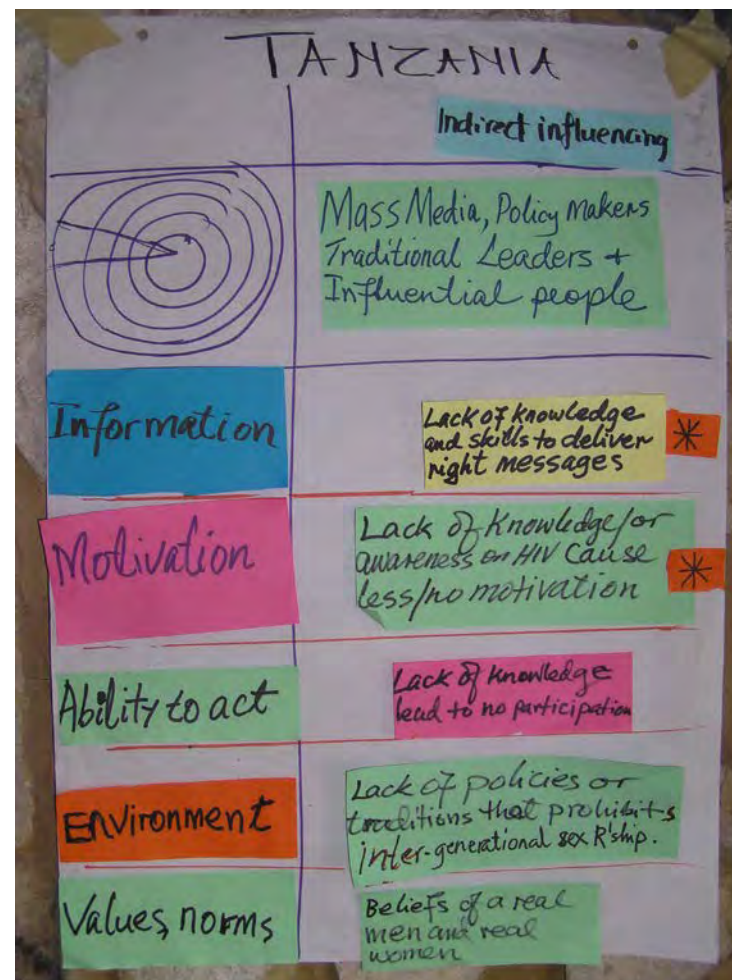 TANZANIA
Indirect influencing
Mass Media, Policy Makers
Traditional Leaders +
Influential people
Information
Lack of knowledge
and skills to deliver
right messages
*
Motivation
Lack of Knowledge/or
awareness on HIV Cause
less/no motivation
*
Ability to act
Lack of knowledge
lead to no participation
Environment
Lack of policies or
traditions that prohibits
inter-generational sex R'ship.
Values, norms
Beliefs of a real
men and real
women